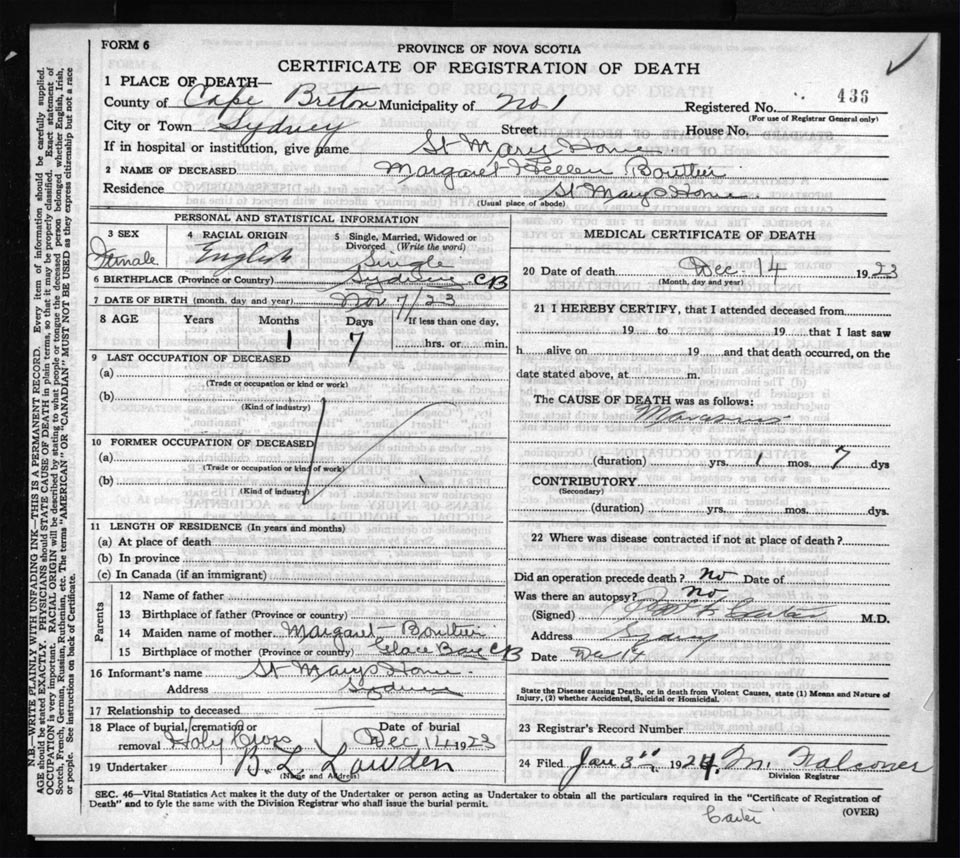 FORM 6
PROVINCE OF NOVA SCOTIA
CERTIFICATE OF REGISTRATION OF DEATH
1 PLACE OF DEATH—
County of Cape Breton Municipality of No. 1 Registered No. 436
(For use of Registrar General only)
City or Town Sydney Street House No.
If in hospital or institution, give name St Mary Home
2 NAME OF DECEASED Margaret Hellen Boutlier
Residence St Marys Home
(Usual place of abode)
PERSONAL AND STATISTICAL INFORMATION
3 SEX 4 RACIAL ORIGIN 5 Single, Married, Widowed or Divorced (Write the word)
Female English Single
6 BIRTHPLACE (Province or Country) Sydney CB
7 DATE OF BIRTH (month, day and year) Nov 7/23
8 AGE Years Months Days If less than one day,
1 7 hrs. or min.
9 LAST OCCUPATION OF DECEASED
(a)
(Trade or occupation or kind or work)
(b)
(Kind of industry)
10 FORMER OCCUPATION OF DECEASED
(a)
(Trade or occupation or kind of work)
(b)
(Kind of industry)
11 LENGTH OF RESIDENCE (In years and months)
(a) At place of death
(b) In province
(c) In Canada (if an immigrant)
Parents
12 Name of father
13 Birthplace of father (Province or country)
14 Maiden name of mother Margaret Boutlier
15 Birthplace of mother (Province or country) Glace Bay CB
16 Informant's name St Marys Home
Address Sydney
17 Relationship to deceased
18 Place of burial, cremation or Date of burial
removal Holy Cross Dec 14 1923
19 Undertaker B. L. Lowden
(Name and Address)
MEDICAL CERTIFICATE OF DEATH
20 Date of death Dec. 14 1923
(Month, day and year)
21 I HEREBY CERTIFY, that I attended deceased from
19 to 19 that I last saw
h alive on 19 and that death occurred, on the
date stated above, at m.
The CAUSE OF DEATH was as follows:
Marasmus
(duration) yrs. 1 mos. 7 dys
CONTRIBUTORY
(Secondary)
(duration) yrs. mos. dys.
22 Where was disease contracted if not at place of death?
Did an operation precede death? no Date of
Was there an autopsy? no
(Signed) M.D.
Address Sydney
Date Dec 14
State the Disease causing Death, or in death from Violent Causes, state (1) Means and Nature of
Injury, (2) whether Accidental, Suicidal or Homicidal.
23 Registrar's Record Number
24 Filed Jan 3rd 1924 M. Falconer
Division Registrar
SEC. 46—Vital Statistics Act makes it the duty of the Undertaker or person acting as Undertaker to obtain all the particulars required in the "Certificate of Registration of
Death" and to fyle the same with the Division Registrar who shall issue the burial permit.
(OVER)
N.B.—WRITE PLAINLY WITH UNFADING INK—THIS IS A PERMANENT RECORD. Every item of information should be carefully supplied.
AGE should be stated EXACTLY. PHYSICIANS should STATE CAUSE OF DEATH in plain terms, so that it may be properly classified. Exact statement of
OCCUPATION is very important. RACIAL ORIGIN will be described by stating to what people or tongue the deceased person belonged whether English, Irish,
Scotch, French, German, Russian, Ruthenian, etc. The terms "AMERICAN" OR "CANADIAN" MUST NOT BE USED as they express citizenship but not a race
or people. See instructions on back of Certificate.